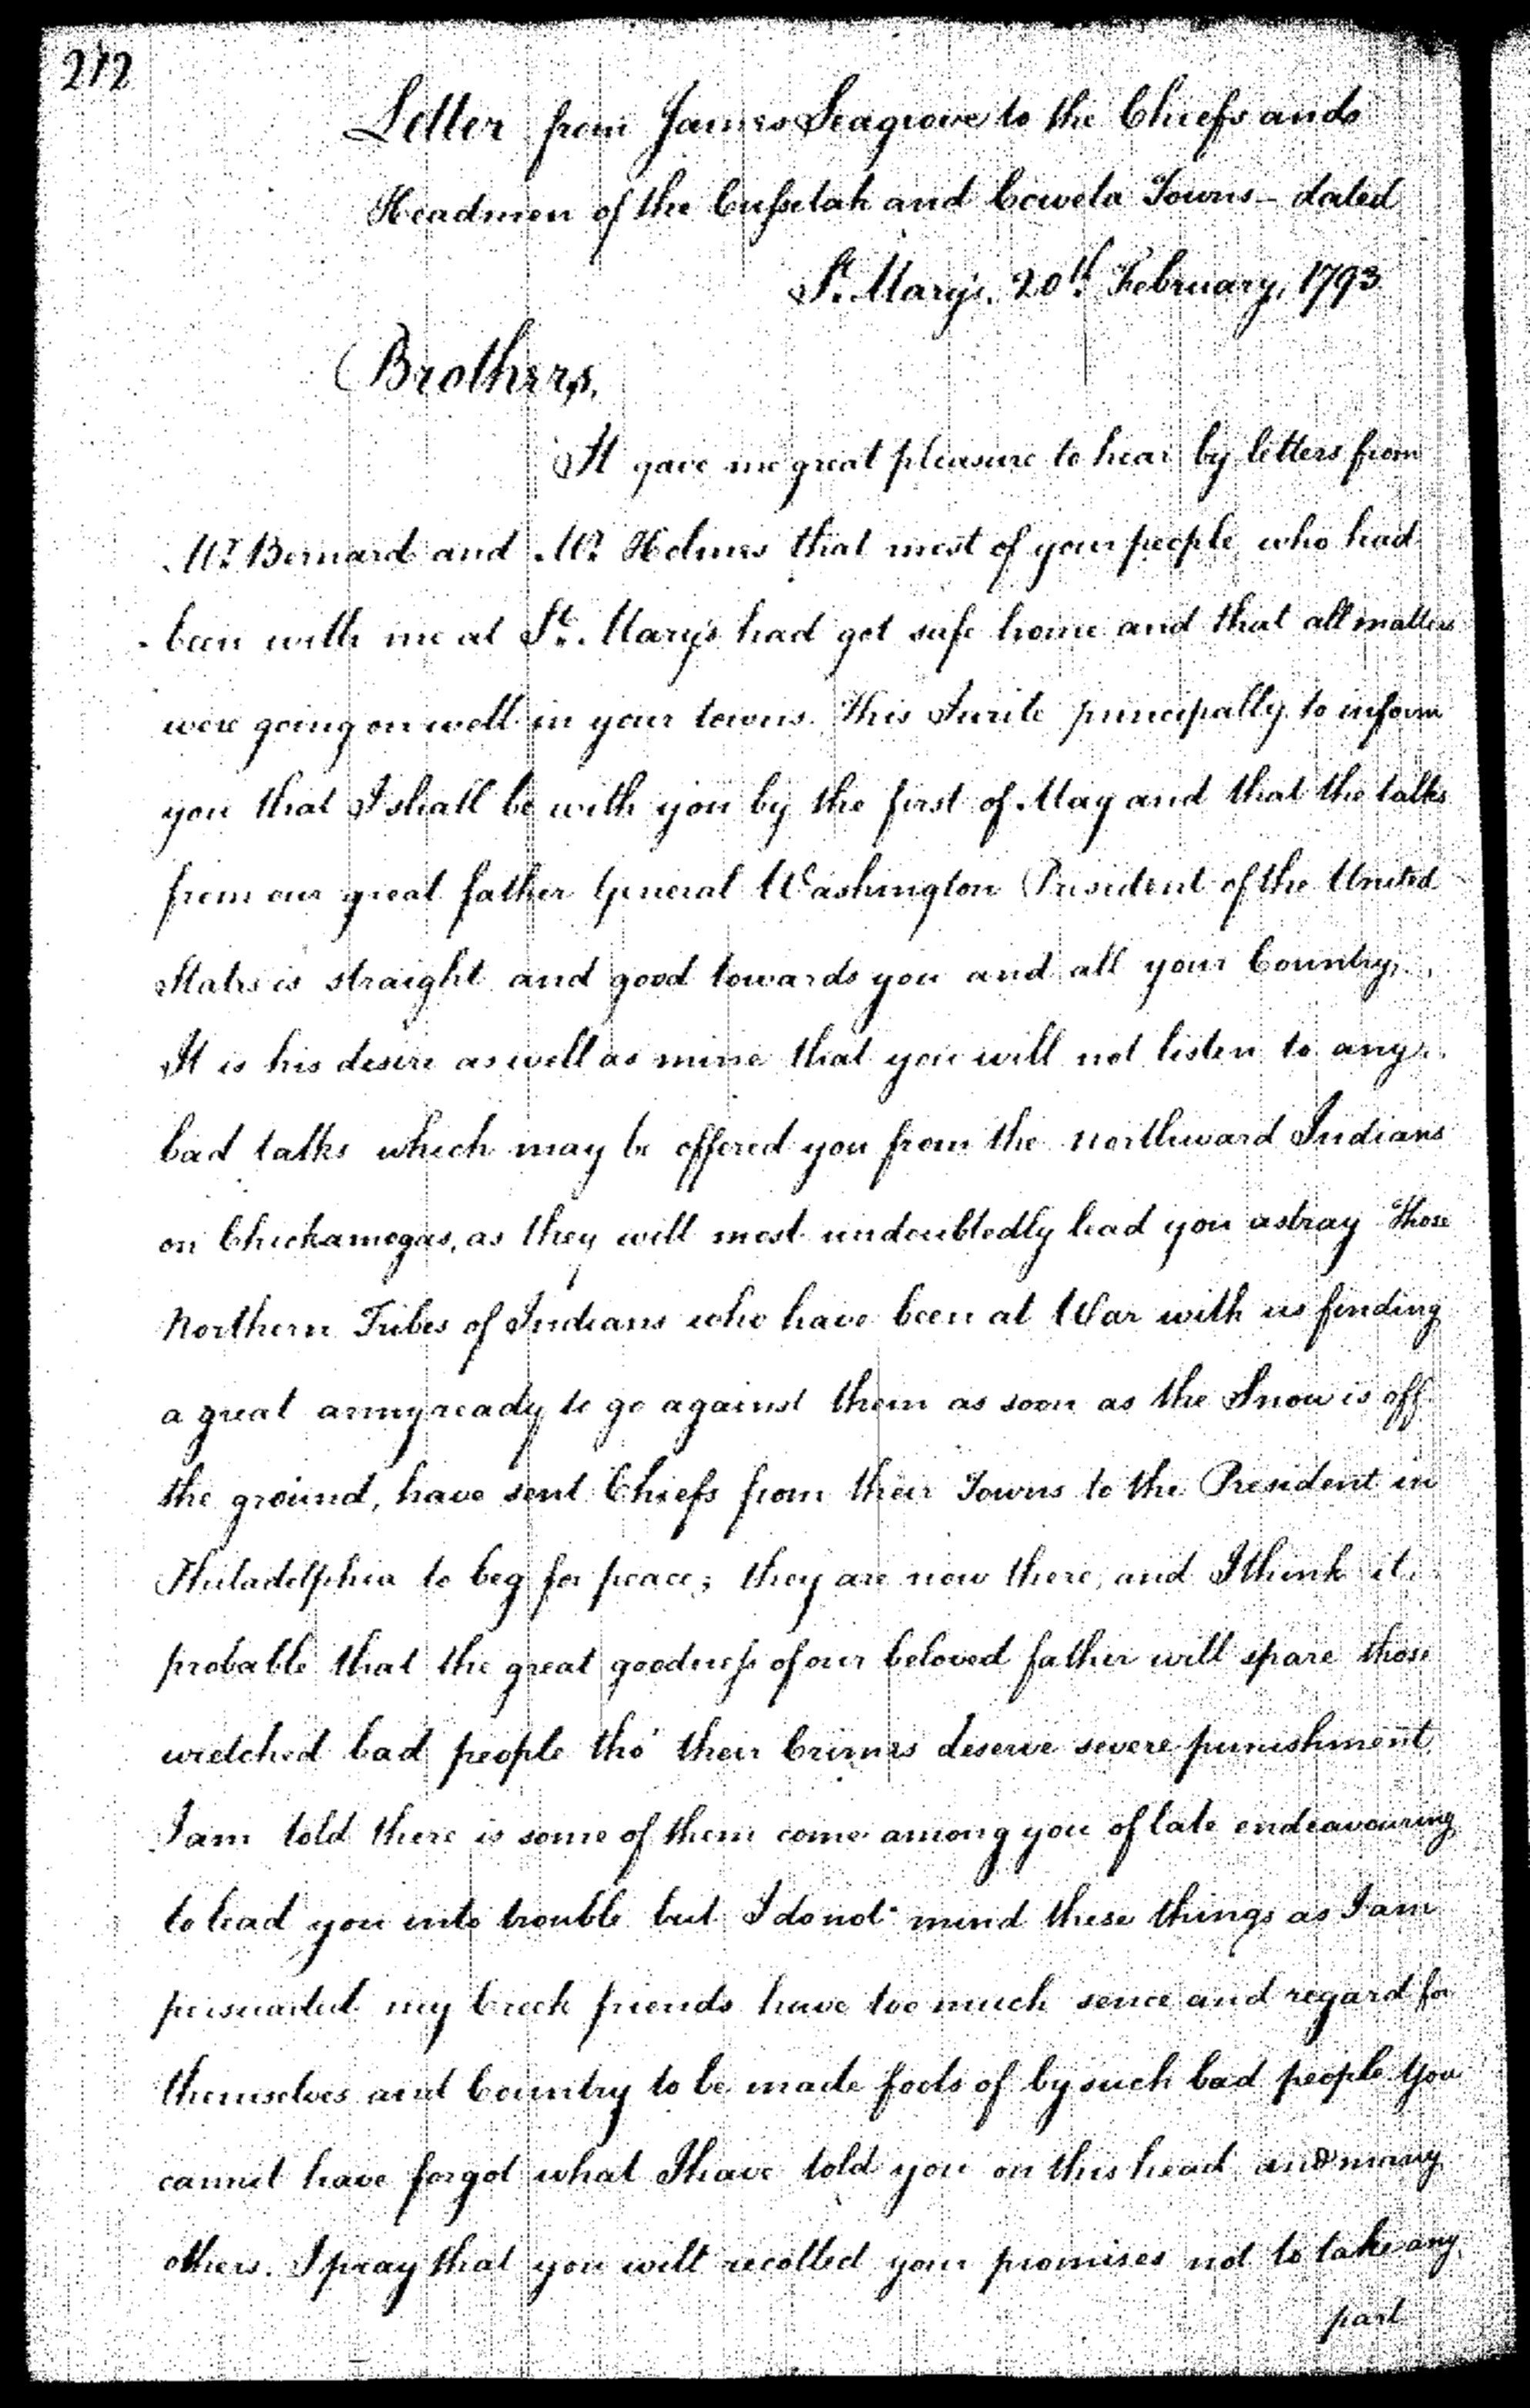 212
Letter from James Seagrove to the Chiefs and
Headmen of the Cussetah and Coweta Towns - dated
St. Mary's. 20th. February, 1793
Brothers,
It gave me great pleasure to hear by letters from
Mr. Bernard and Mr. Holmes that most of your people who had
been with me at St. Mary's had got safe home and that all matters
were going on well in your towns. This I write principally to inform
you that I shall be with you by the first of May and that the talks
from our great father General Washington President of the United
States is straight and good towards you and all your Country,
It is his desire as well as mine that you will not listen to any
bad talks which may be offered you from the northward Indians
on Chickamogas, as they will most undoubtedly lead you astray Those
Northern Tribes of Indians who have been at War with us finding
a great army ready to go against them as soon as the Snow is off
the ground, have sent Chiefs from their Towns to the President in
Philadelphia to beg for peace; they are now there, and I think it
probable that the great goodness of our beloved father will spare those
wretched bad people tho' their Crimes deserve severe punishment
I am told there is some of them come among you of late endeavouring
to lead you into trouble but I do not mind these things as I am
persuaded my Creek friends have too much sence and regard for
themselves and Country to be made fools of by such bad people You
cannot have forgot what I have told you on this head and many
others. I pray that you will recollect your promises not to take any
part